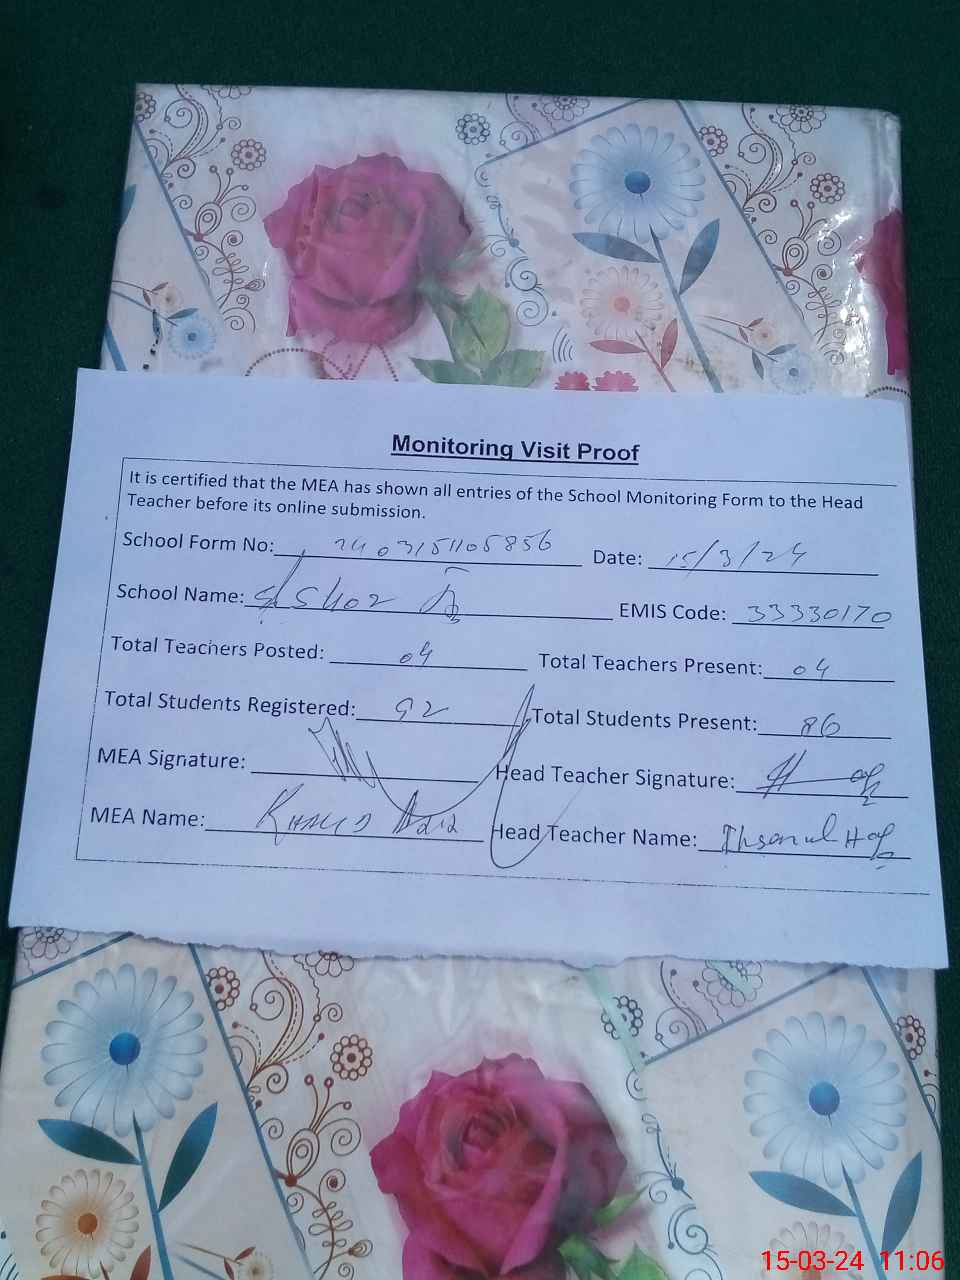 Monitoring Visit Proof
It is certified that the MEA has shown all entries of the School Monitoring Form to the Head
Teacher before its online submission.
School Form No: 2403151105856 Date: 15/3/24
School Name: EMIS Code: 33330170
Total Teachers Posted: 04 Total Teachers Present: 04
Total Students Registered: 92 Total Students Present: 86
MEA Signature: Head Teacher Signature:
MEA Name: Khalid Aziz Head Teacher Name: Ihsanul Haq
15-03-24 11:06